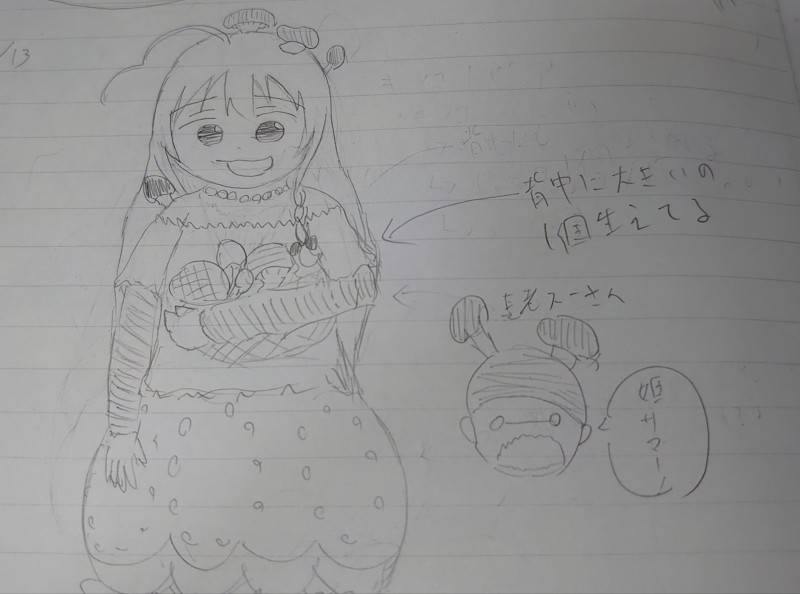 /13
背中に大きいの
1個生えてる
長老スーさん
姫サマー!